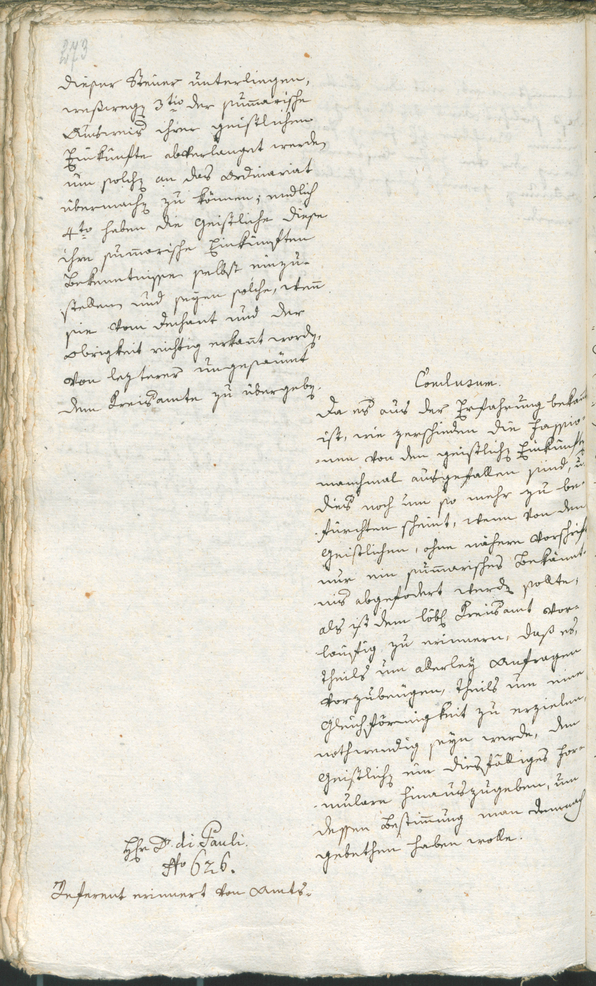 273
dieser Steuer unterliegen,
waßwegen 3tio der summarische
Ausweis ihrer geistlichen
Einkünfte abverlangt werden
um solche an das Ordinariat
übermachen zu können; endlich
4to haben die Geistliche diese
ihre summarische Einkünften
Bekenntnisse selbst einzu-
stellen und seyen solche, wenn
sie vom Dechant und der
Obrigkeit richtig erkannt worden,
von lezterer ungesäumt
dem Kreisamte zu übergeben.
Conclusum.
Da es aus der Erfahrung bekannt
ist, wie verschieden die Fassio-
nen von den geistlichen Einkünften
manchmal ausgefallen sind, u.
dies noch um so mehr zu be-
fürchten scheint, wenn von den
Geistlichen, ohne nähere Vorschrift
nur ein summarisches Bekannt-
nis abgefodert werden sollte,
als ist dem löbl. Kreisamt vor-
läufig zu erinnern, daß es,
theils um allerley Anfragen
vorzubeugen, theils um eine
Gleichförmigkeit zu erzielen,
nothwendig seyn werde, den
Geistlichen ein diesfälliges For-
mulare hinauszugeben, um
dessen Bestimmung man demnach
gebethen haben wolle.
Hr. D. di Pauli.
No 626.
Referent erinnert von Amts-